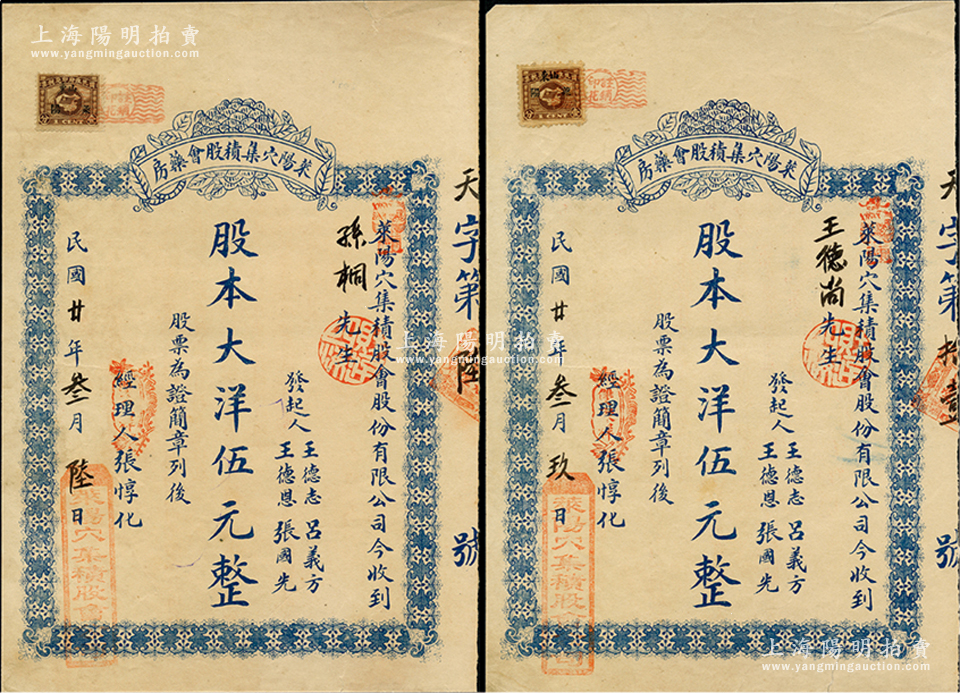 上海陽明拍賣
www.yangmingauction.com
萊陽穴集積股會藥房
天字第 陸 號
萊陽穴集積股會股份有限公司今收到
孫桐先生
發起人 王德志 呂義方
王德恩 張國光
股本大洋伍元整
股票為證簡章列後
經理人張惇化
民國廿年叁月陸日
萊陽穴集積股會
1 CENT
上海陽明拍賣
www.yangmingauction.com
萊陽穴集積股會藥房
天字第 拾壹 號
萊陽穴集積股會股份有限公司今收到
王德尚先生
發起人 王德志 呂義方
王德恩 張國光
股本大洋伍元整
股票為證簡章列後
經理人張惇化
民國廿年叁月玖日
萊陽穴集積股會
1 CENT
上海陽明拍賣
www.yangmingauction.com